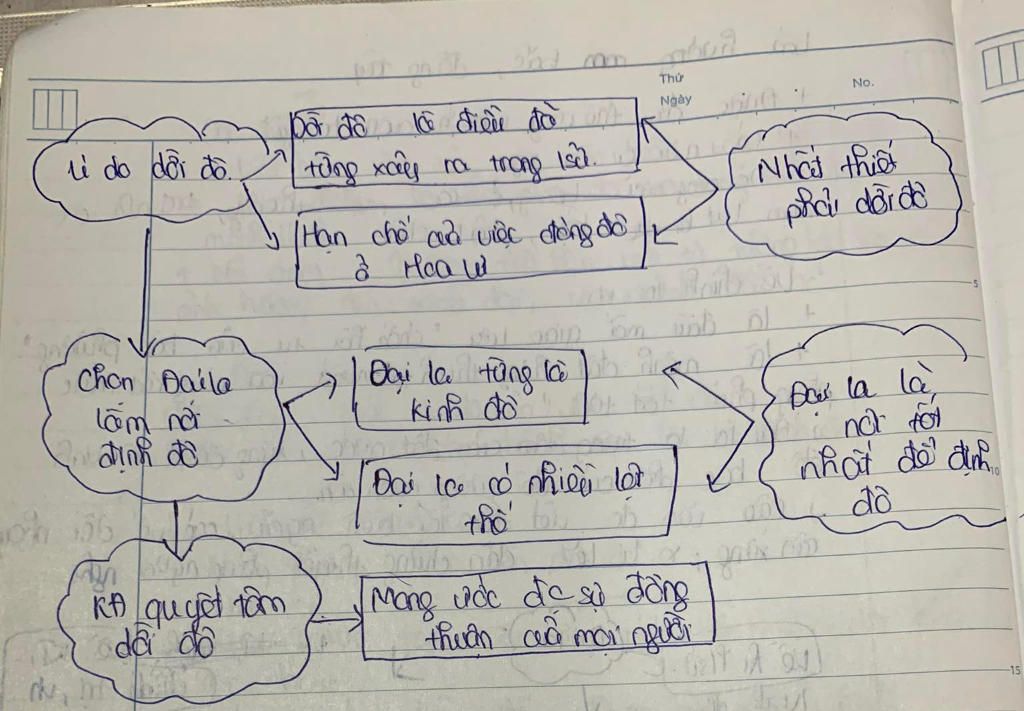 Thứ
Ngày
No.
Lí do dời đô.
Dời đô là điều đã
từng xảy ra trong lsử.
Hạn chế của việc đóng đô
ở Hoa Lư
Nhất thiết
phải dời đô
5
Chọn Đại la
làm nơi
định đô
Đại la từng là
kinh đô
Đại la có nhiều lợi
thế
Đại la là
nơi tốt
nhất để định
đô
10
KĐ quyết tâm
dời đô
Mong ước đc sự đồng
thuận của mọi người
15